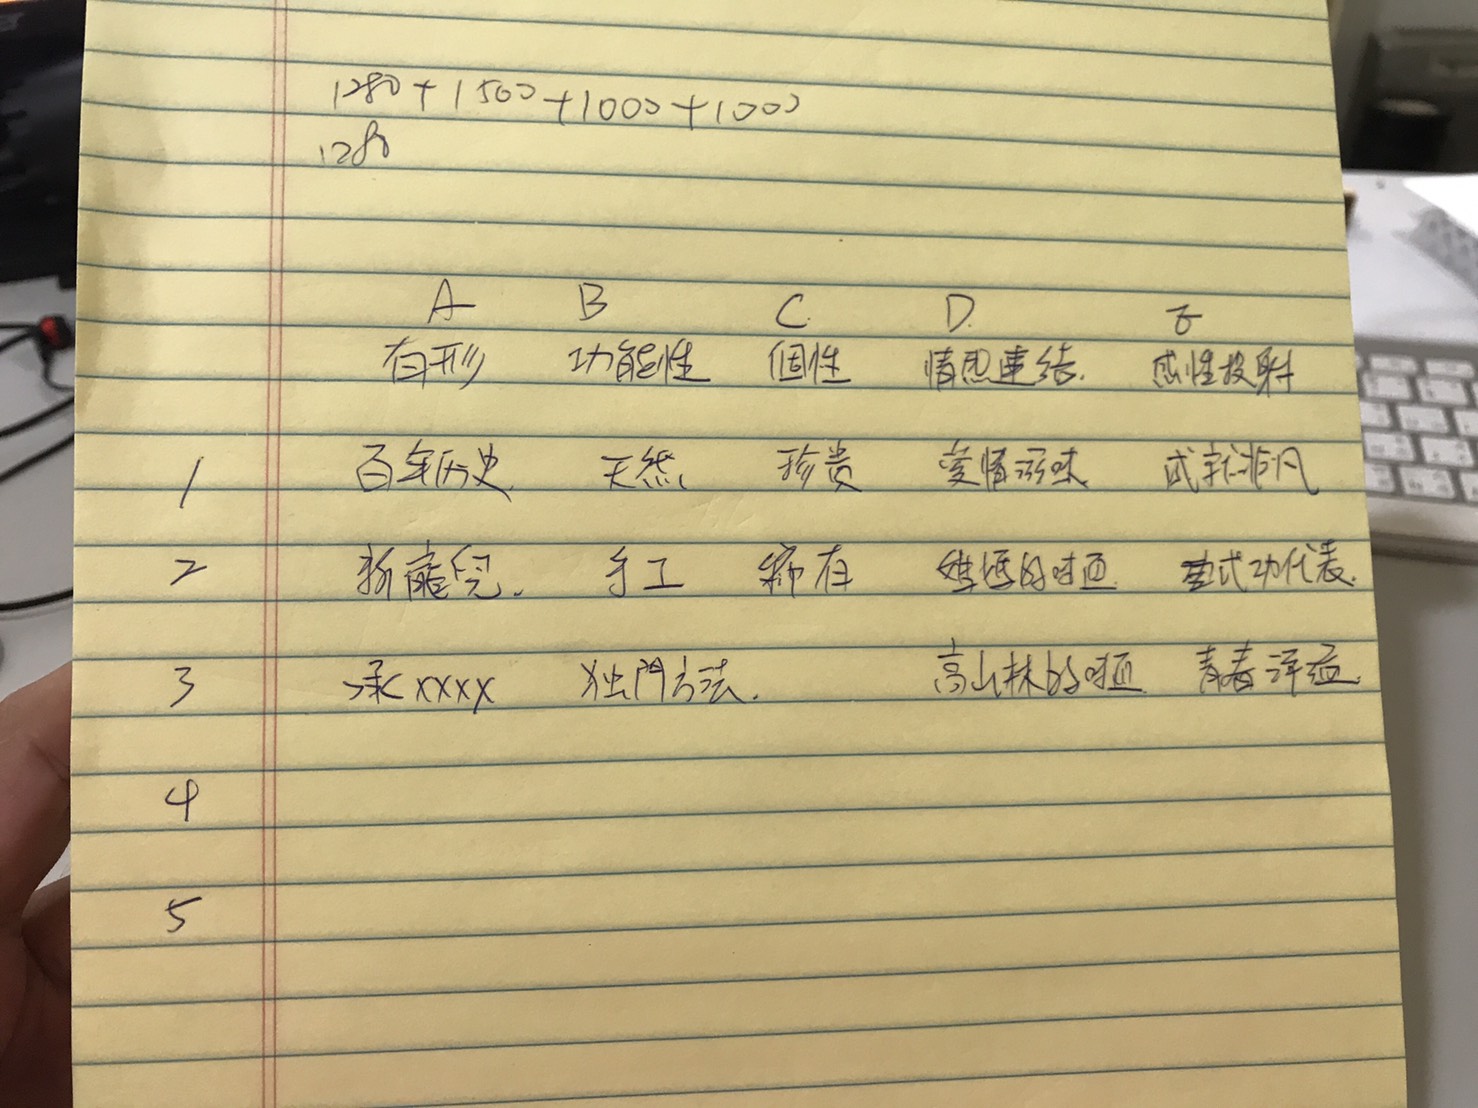 1280+1500+1000+1000
1280
A B C. D. E
有形 功能性 個性 情思連結. 感性投射
1 百年历史. 天然、 珍貴 愛情滋味 成就非凡
2 新寵兒. 手工 稀有 媽媽的味道 成功代表.
3 承xxxx 独門方法. 高山林的味道 青春洋溢
4
5